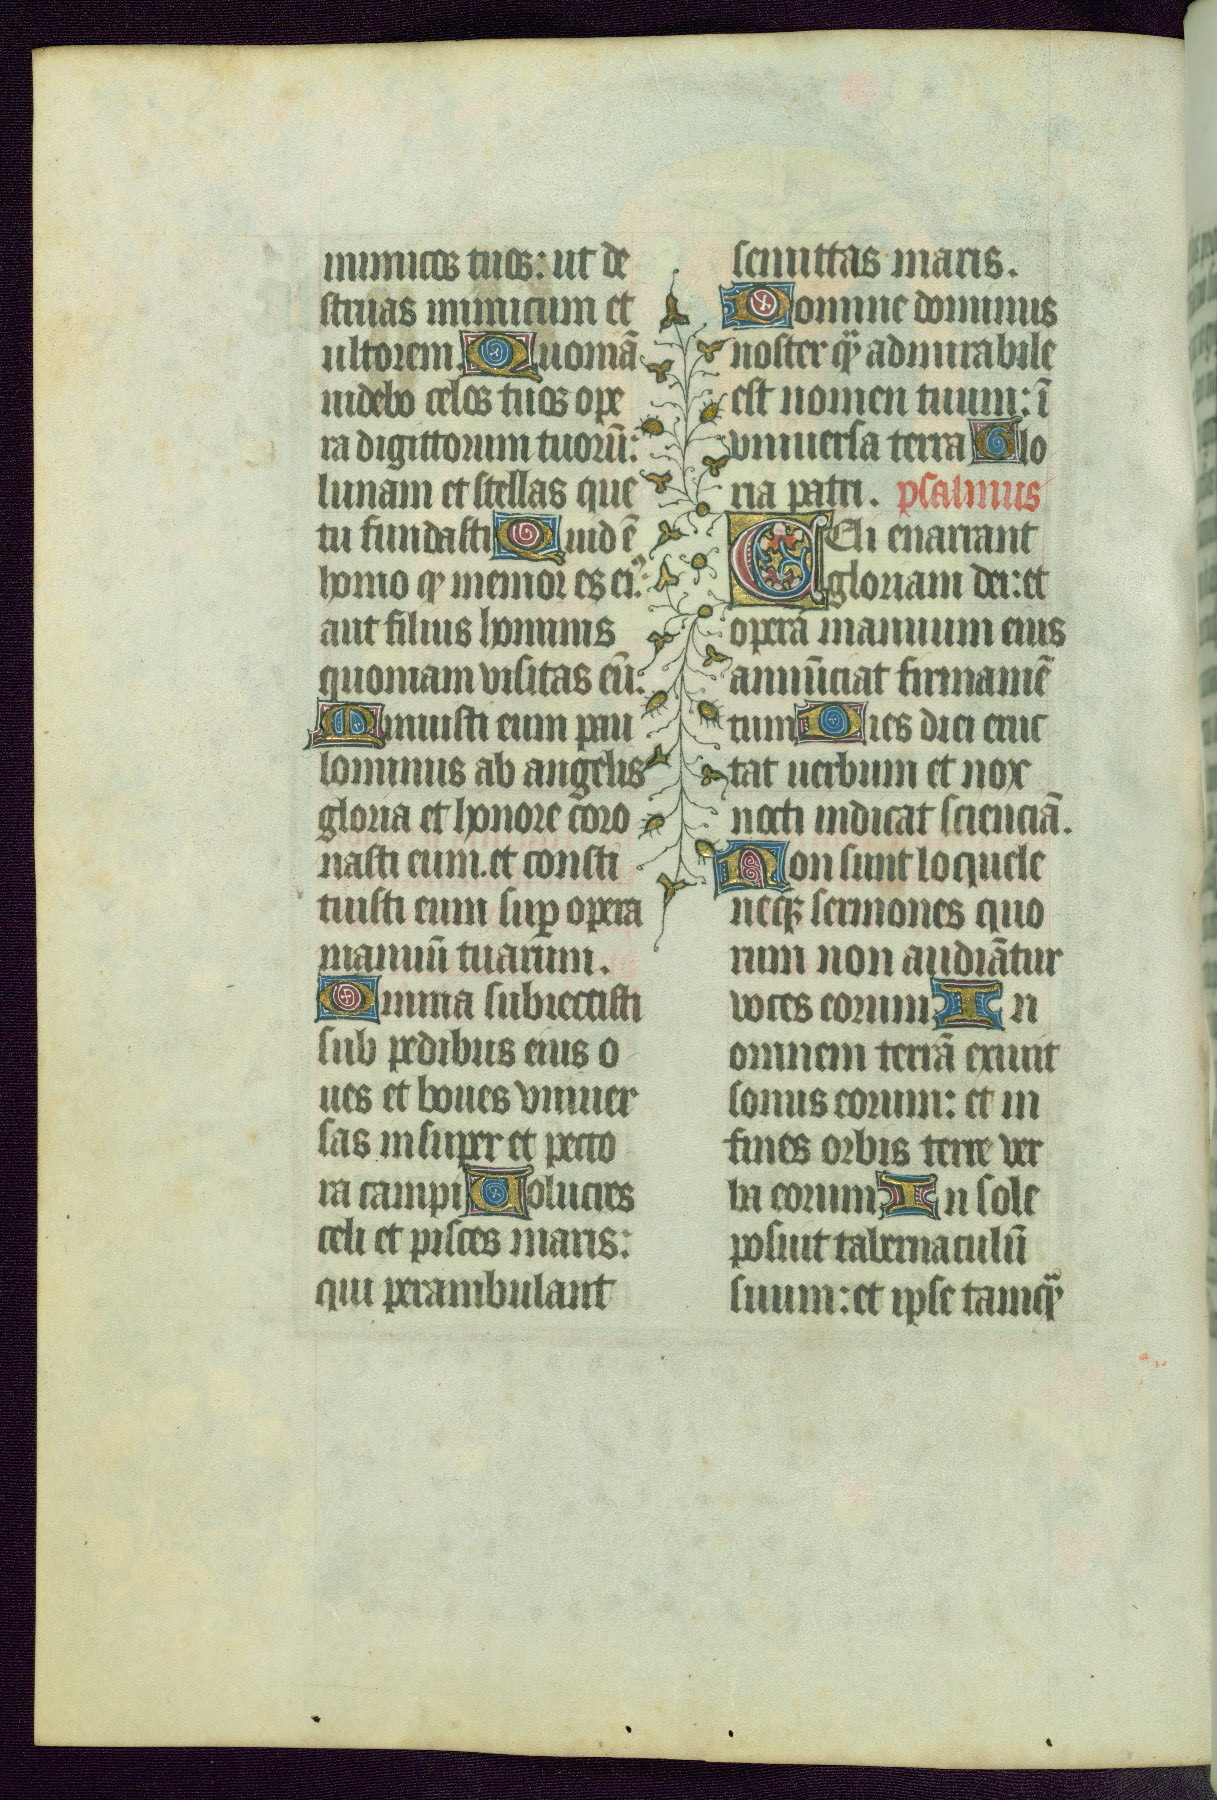 inimicos tuos: ut de
struas inimicum et
ultorem. Quoniā
uidebo celos tuos ope
ra digittorum tuorū:
lunam et stellas que
tu fundasti Quid ē
homo qͥ memor es eiꝰ:
aut filius hominis
quoniam visitas eū.
Minuisti eum pau
lominus ab angelis
gloria et honore coro
nasti eum. et consti
tuisti eum suꝑ opera
manuū tuarum.
Omnia subiecisti
sub pedibus eius o
ues et boues vniuer
sas insuper et pecto
ra campi Uolucres
celi et pisces maris:
qui perambulant
semittas maris.
Domine dominus
noster qͣ admirabile
est nomen tuum: ī
vniuersa terra Glo
ria patri. psalmus
CEli enarrant
gloriam dei: et
opera manuum eius
annūciat firmamē
tum Dies diei eruc
tat uerbum et nox
nocti indicat scienciā.
Non sunt loquele
neqꝫ sermones quo
rum non audiātur
voces eorum. In
omnem terrā exiuit
sonus eorum: et in
fines orbis terre ver
ba eorum. In sole
posuit tabernaculū
suum: et ipse tamqͣ